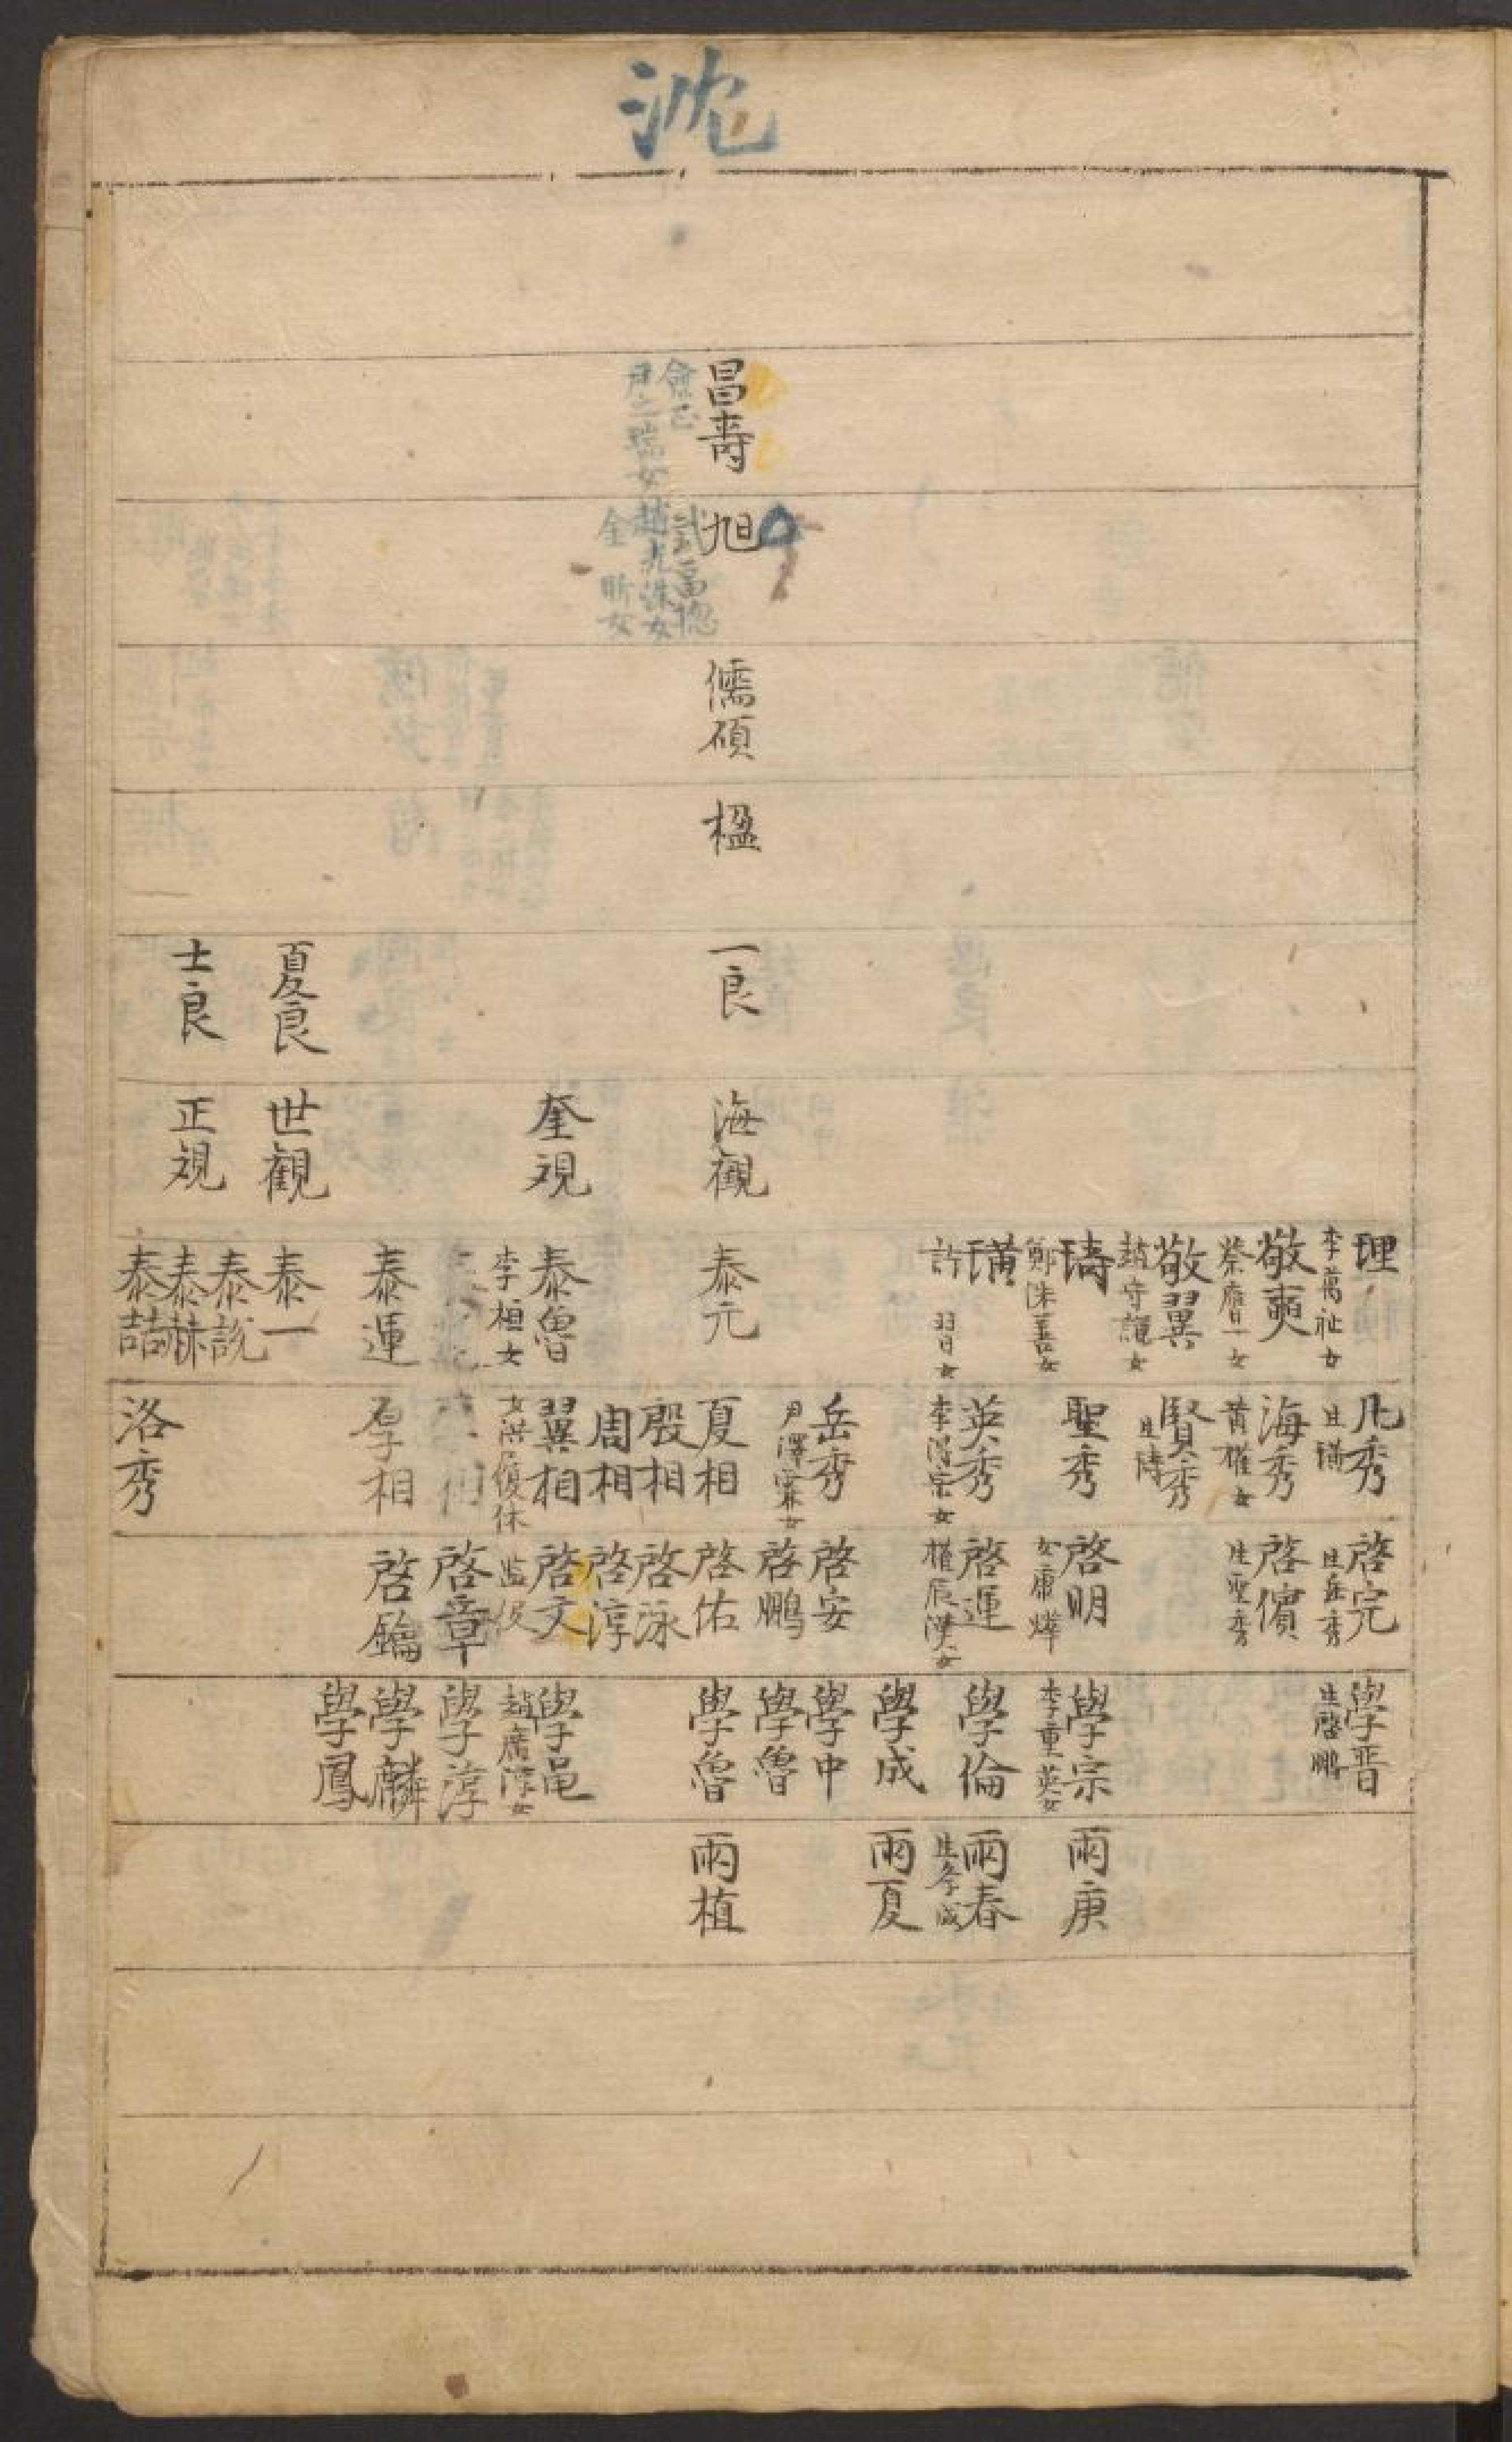 沈
昌壽
俞 正
尹之瑞女
旭
武富
趙光洙女
金昕女
儒碩
楹
一良
夏良
士良
海觀
奎観
世観
正視
理
李萬祉女
敬奭
蔡膺一女
敬翼
趙守謹女
璹
鄭洙善女
璜
許 習女
泰元
泰魯
李桓女
泰運
泰一
泰說
泰喆
凡秀
生璜
海秀
黃權女
賢秀
生璹
聖秀
英秀
李得宗女
岳秀
尹澤霖女
夏相
殷相
周相
翼相
女洪復休
厚相
洛秀
啓完
生岳秀
啓儐
生聖秀
啓明
女康燁
啓運
權辰漢女
啓安
啓鵬
啓佑
啓泳
啓淳
啓文
監役
啓章
啓鑰
學晋
生啓鵬
學宗
李重英女
學倫
學成
學中
學魯
學魯
學邑
趙廣淳女
學淳
學麟
學鳳
雨庚
雨春
生學成
雨夏
雨植